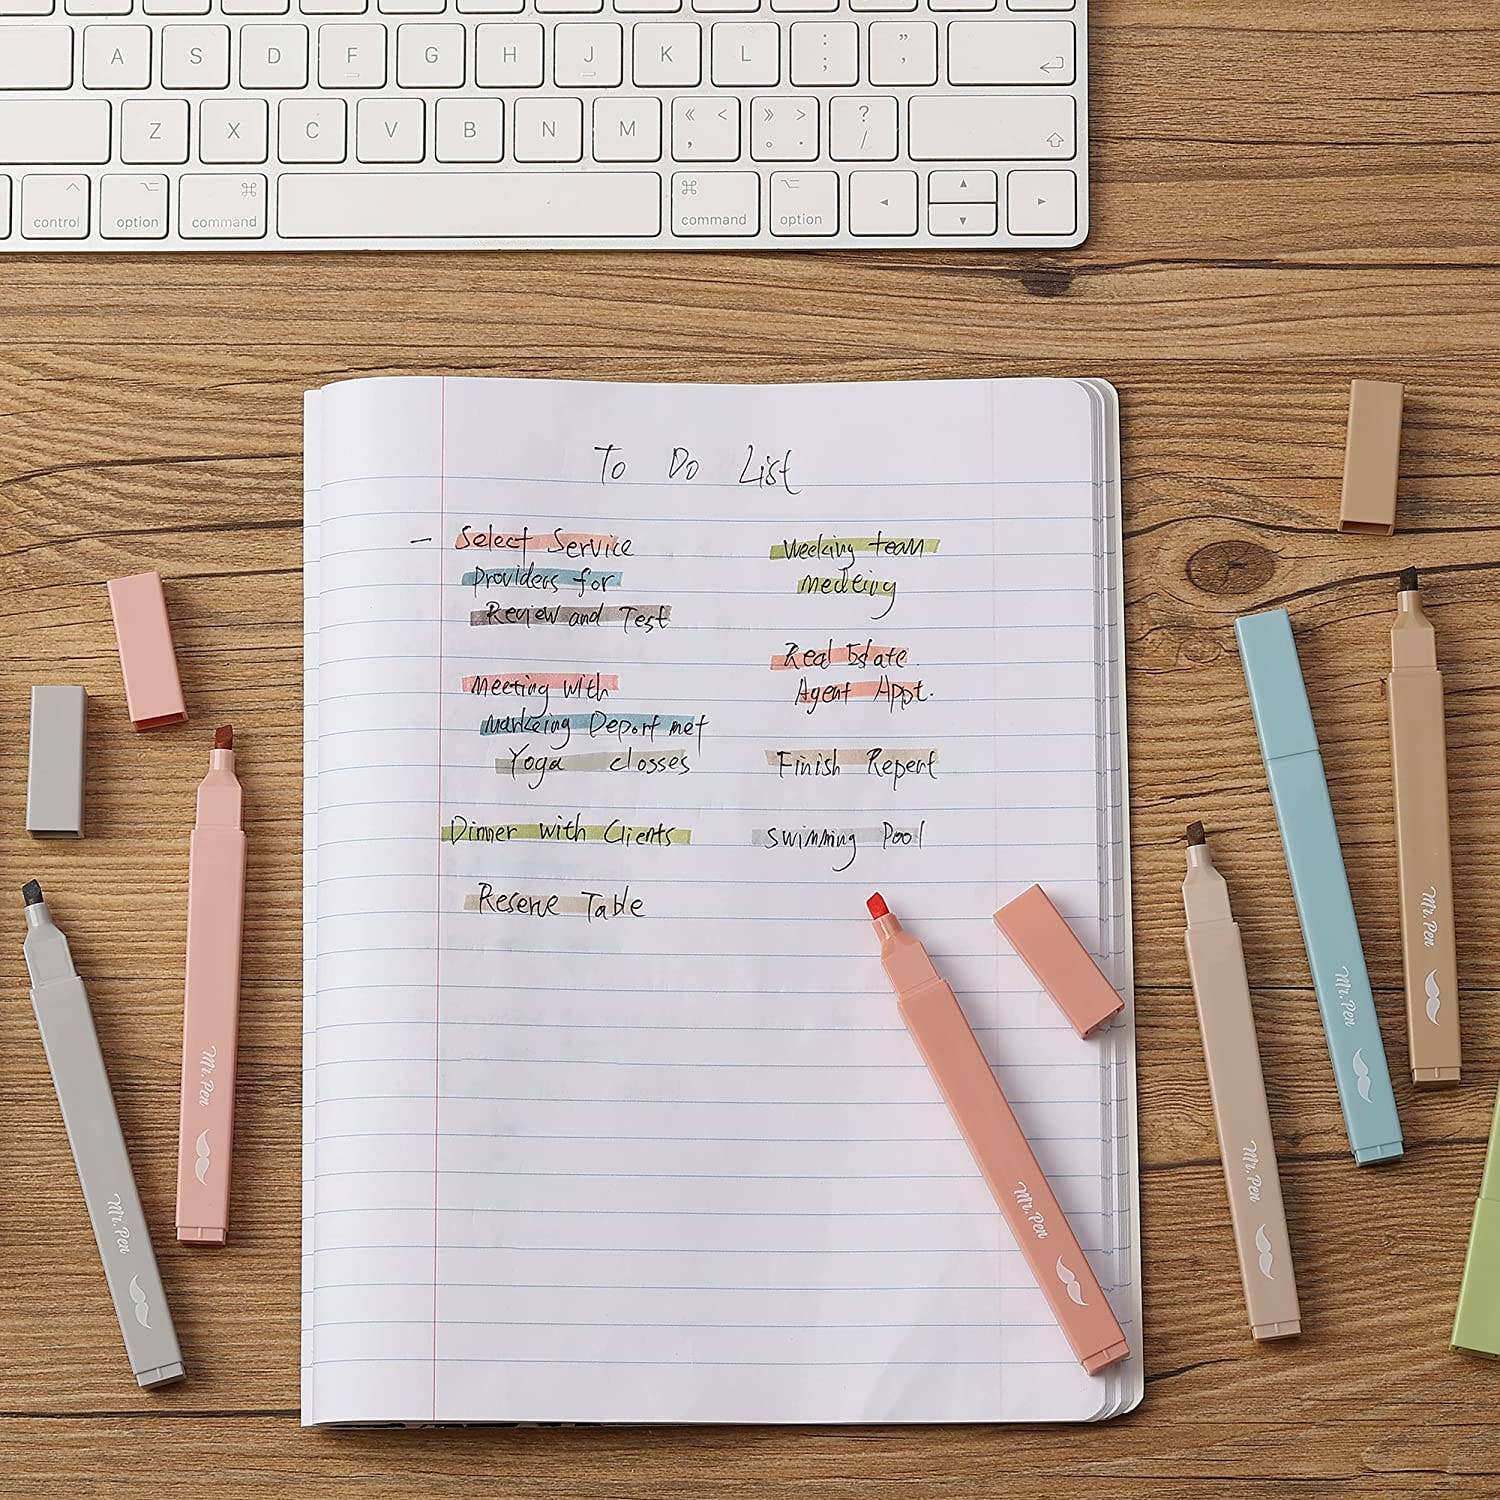 A S D F G H J K L : ; " '
Z X C V B N M 《 < , 》 > 。 . ? /
^ control ⌥ option ⌘ command ⌘ command ⌥ option ◄ ▲ ▼ ►
To Do List
- Select Service
Providers for
Review and Test
Meeting with
Deportmet
Yoga closses
Dinner with Clients
Reserve Table
team
Real Estate
Agent Appt.
Finish Repert
Swimming Pool
Mr. Pen
Mr. Pen
Mr. Pen
Mr. Pen
Mr. Pen
Mr. Pen